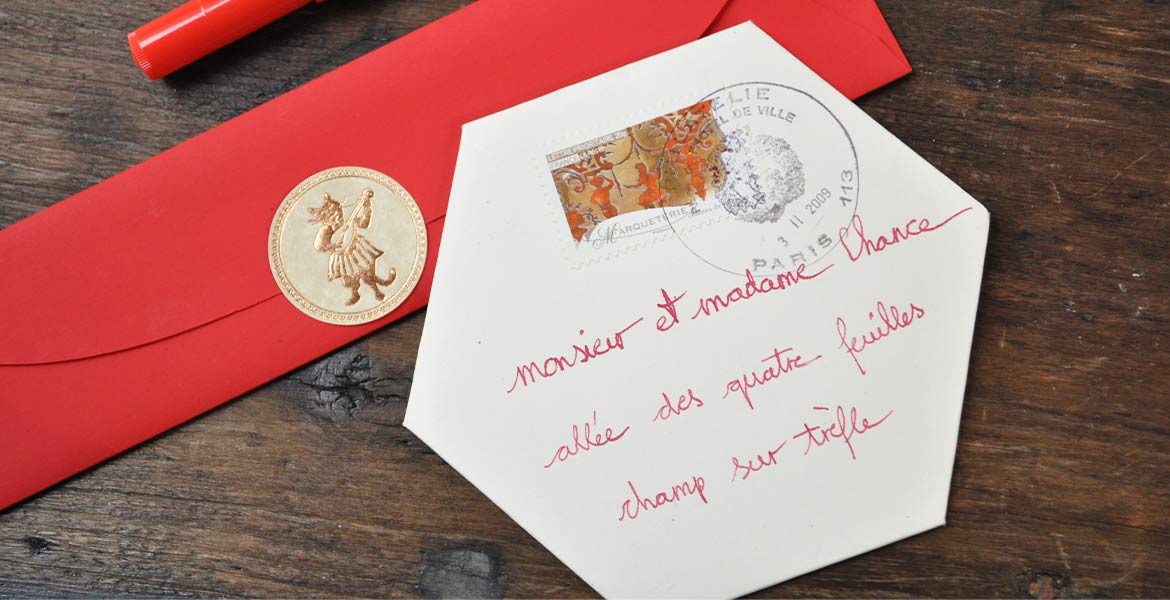 ELIE
EL DE VILLE
113
3 11 2009
PARIS
LETTRE PRIORITAIRE 20g
FRANCE
MARQUETERIE
monsieur et madame Chance
allée des quatre feuilles
champ sur trèfle